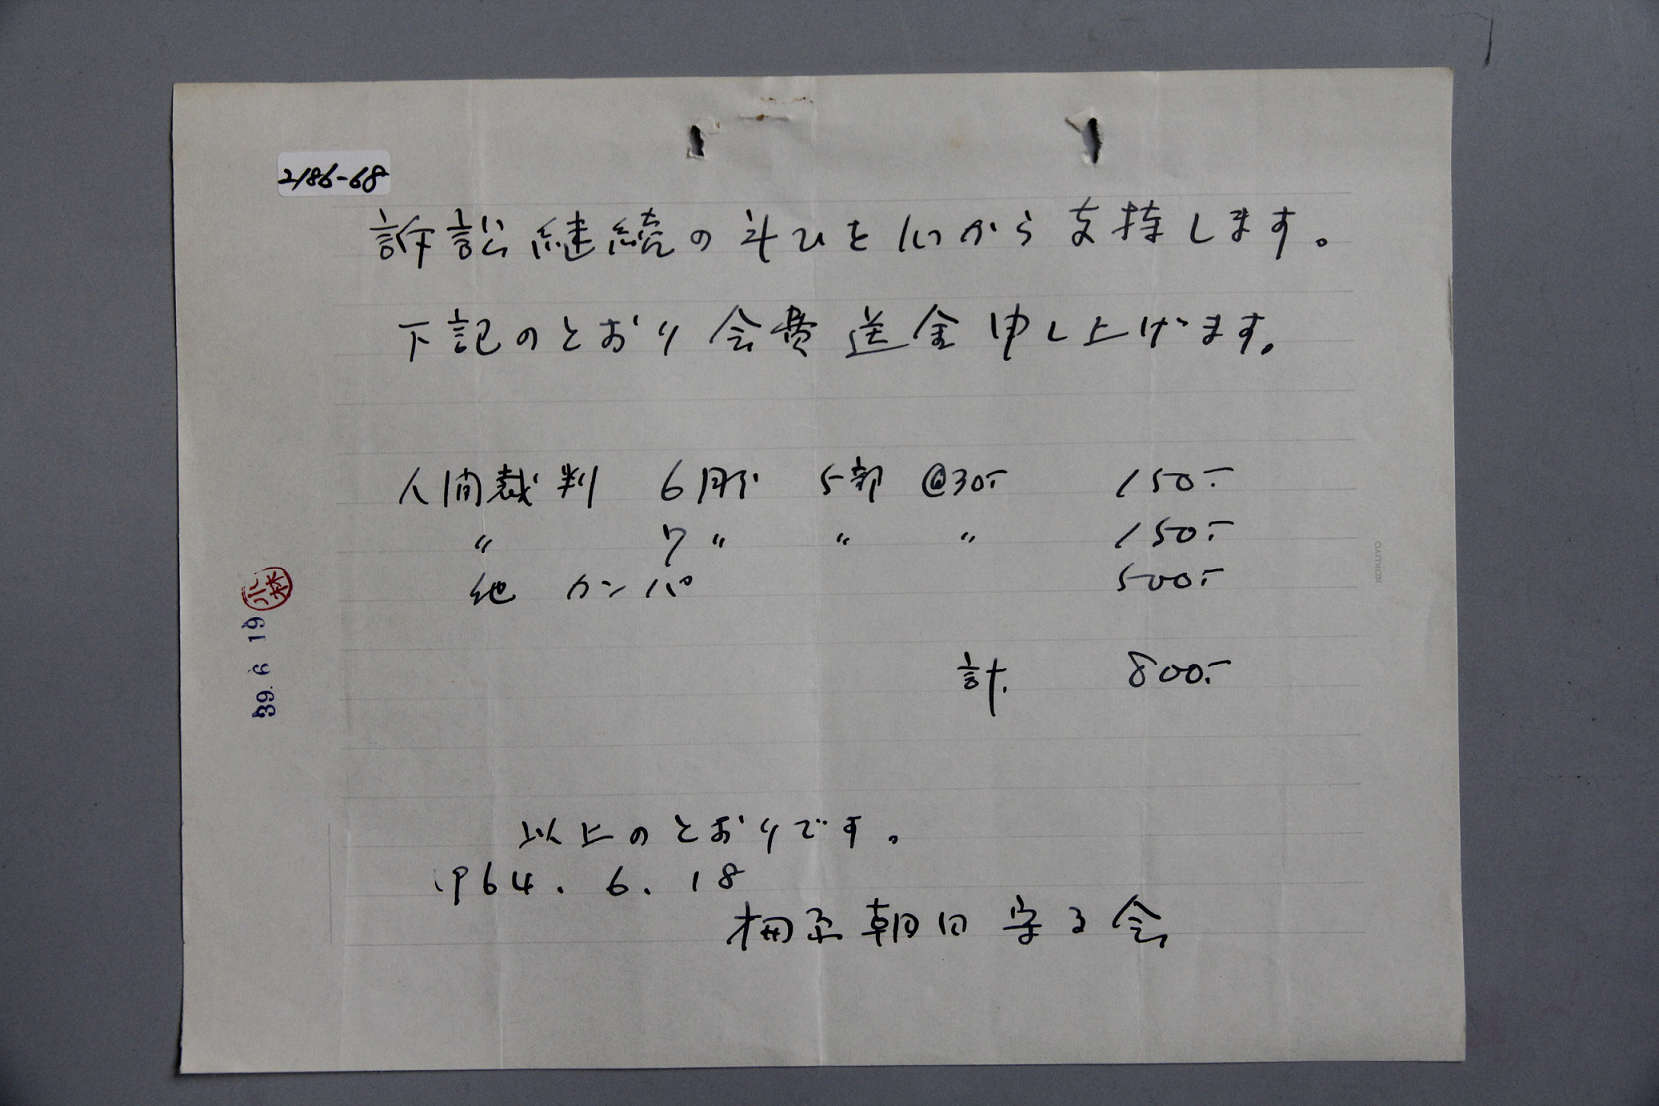 2186-68
訴訟継続の斗ひを心から支持します。
下記のとおり会費送金申し上げます。
人間裁判 6月分 5部 @30.- 150.-
〃 7〃 〃 〃 150.-
他 カンパ 500.-
計. 800.-
小林
39.6.19
以上のとおりです。
1964.6.18
朝日守る会